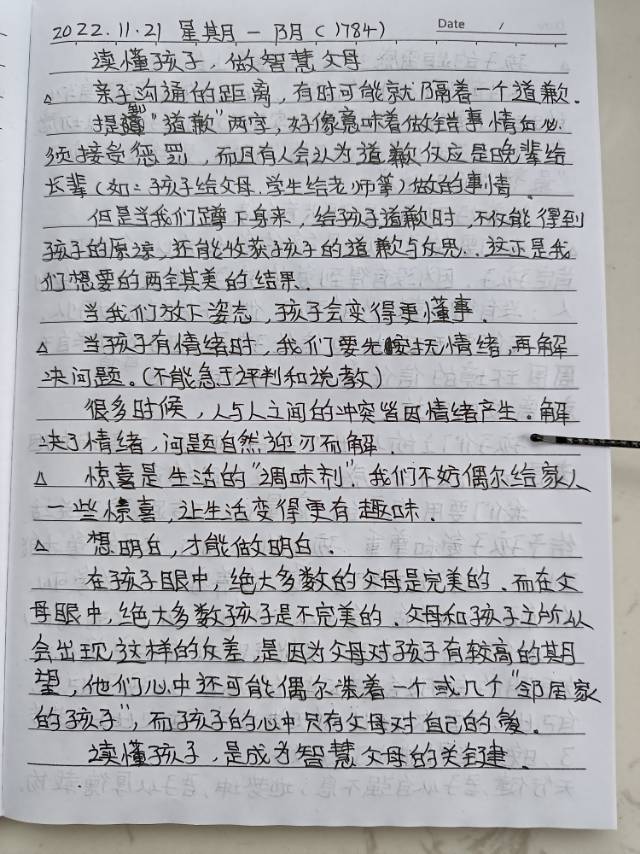 2022.11.21 星期一 阴 (1784) Date /
读懂孩子，做智慧父母
△ 亲子沟通的距离，有时可能就隔着一个道歉。
提到"道歉"两字，好像意味着做错事情后必
须接受惩罚，而且有人会认为道歉仅应是晚辈给
长辈(如：孩子给父母、学生给老师等)做的事情
但是当我们蹲下身来，给孩子道歉时，不仅能得到
孩子的原谅，还能收获孩子的道歉与反思。这正是我
们想要的两全其美的结果.
当我们放下姿态，孩子会变得更懂事.
△ 当孩子有情绪时，我们要先安抚情绪，再解
决问题。(不能急于评判和说教)
很多时候，人与人之间的冲突皆因情绪产生。解
决了情绪，问题自然迎刃而解.
△ 惊喜是生活的"调味剂"，我们不妨偶尔给家人
一些惊喜，让生活变得更有趣味.
△ 想明白，才能做明白.
在孩子眼中，绝大多数的父母是完美的.而在父
母眼中，绝大多数孩子是不完美的.父母和孩子之所以
会出现这样的反差，是因为父母对孩子有较高的期
望，他们心中还可能偶尔装着一个或几个"邻居家
的孩子"，而孩子的心中只有父母对自己的爱.
读懂孩子，是成为智慧父母的关键.